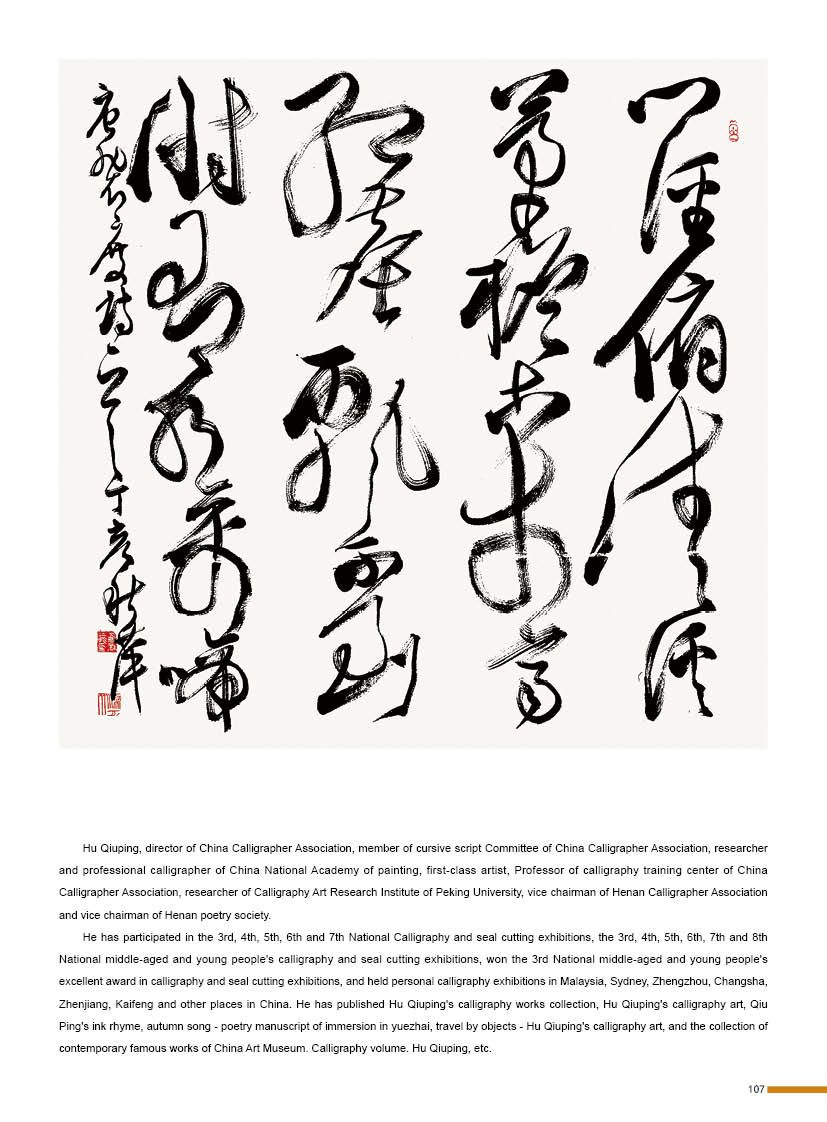 門徑俯清溪
茅檐古木齊
紅塵飄不到
時有水禽啼
唐裴度詩 秋萍
Hu Qiuping, director of China Calligrapher Association, member of cursive script Committee of China Calligrapher Association, researcher
and professional calligrapher of China National Academy of painting, first-class artist, Professor of calligraphy training center of China
Calligrapher Association, researcher of Calligraphy Art Research Institute of Peking University, vice chairman of Henan Calligrapher Association
and vice chairman of Henan poetry society.
He has participated in the 3rd, 4th, 5th, 6th and 7th National Calligraphy and seal cutting exhibitions, the 3rd, 4th, 5th, 6th, 7th and 8th
National middle-aged and young people's calligraphy and seal cutting exhibitions, won the 3rd National middle-aged and young people's
excellent award in calligraphy and seal cutting exhibitions, and held personal calligraphy exhibitions in Malaysia, Sydney, Zhengzhou, Changsha,
Zhenjiang, Kaifeng and other places in China. He has published Hu Qiuping's calligraphy works collection, Hu Qiuping's calligraphy art, Qiu
Ping's ink rhyme, autumn song - poetry manuscript of immersion in yuezhai, travel by objects - Hu Qiuping's calligraphy art, and the collection of
contemporary famous works of China Art Museum. Calligraphy volume. Hu Qiuping, etc.
107